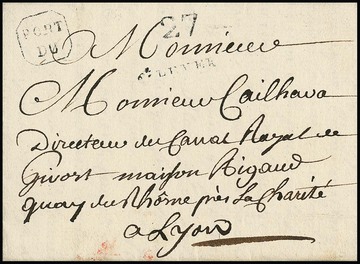 PORT
DU
27
Sᵗ LEVER
Monsieur
Monsieur Cailhava
Directeur du Canal Royal de
Givort maison Rigaud
quay du Rhône près La Charité
a Lyon